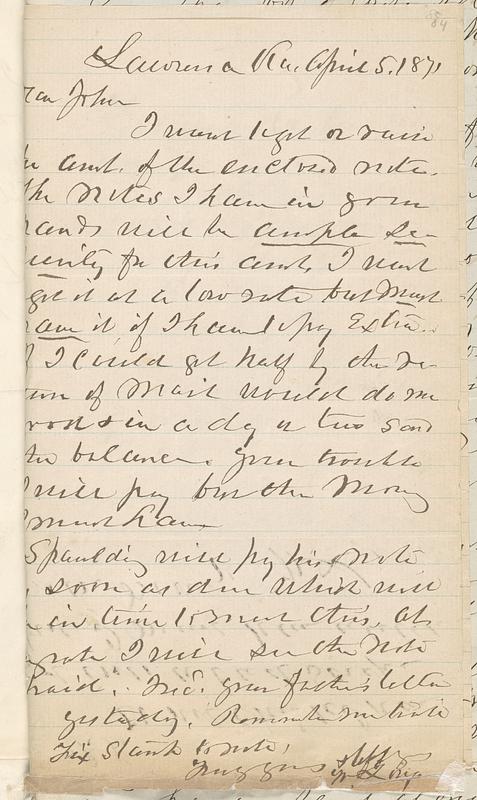 84
Lawrence Kas. April 5. 1871
ear John
I want to get or raise
he amt. of the enclosed note.
The notes I have in your
hands will be ample se-
curity for this amt. I must
get it at a low rate but must
have it if I have to pay Extra.
I could get half by the re-
turn of Mail would do me
and in a day or two send
the balance. your trouble
I will pay but the Money
I must have
Spaulding will pay his Note
soon as due which will
be in time to meet this. at
rate I will see the Note
paid. Rec'd. your father's letter
yesterday. Remember me to
Fix Stamp to note,